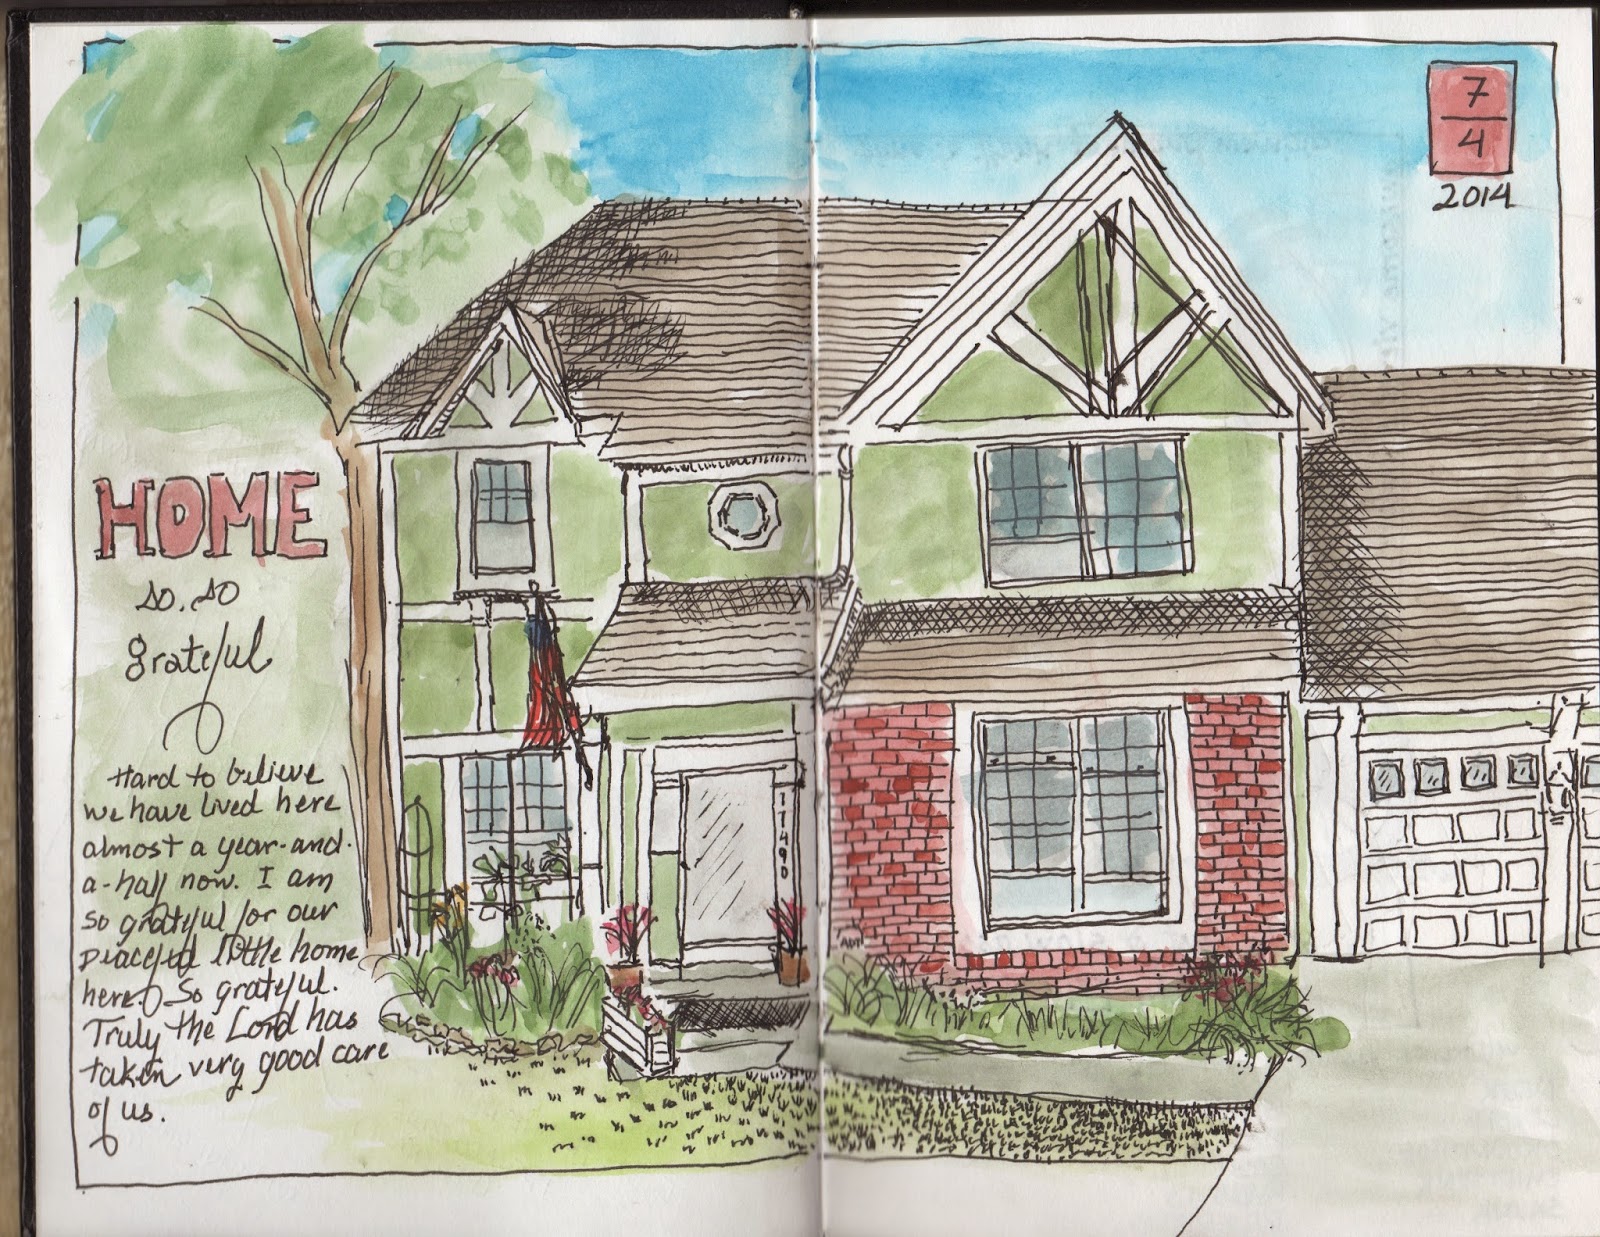 7
4
2014
HOME
so, so
grateful
Hard to believe
we have lived here
almost a year-and-
a-half now. I am
so grateful for our
peaceful little home
here. So grateful.
Truly the Lord has
taken very good care
of us.
17490
ADT